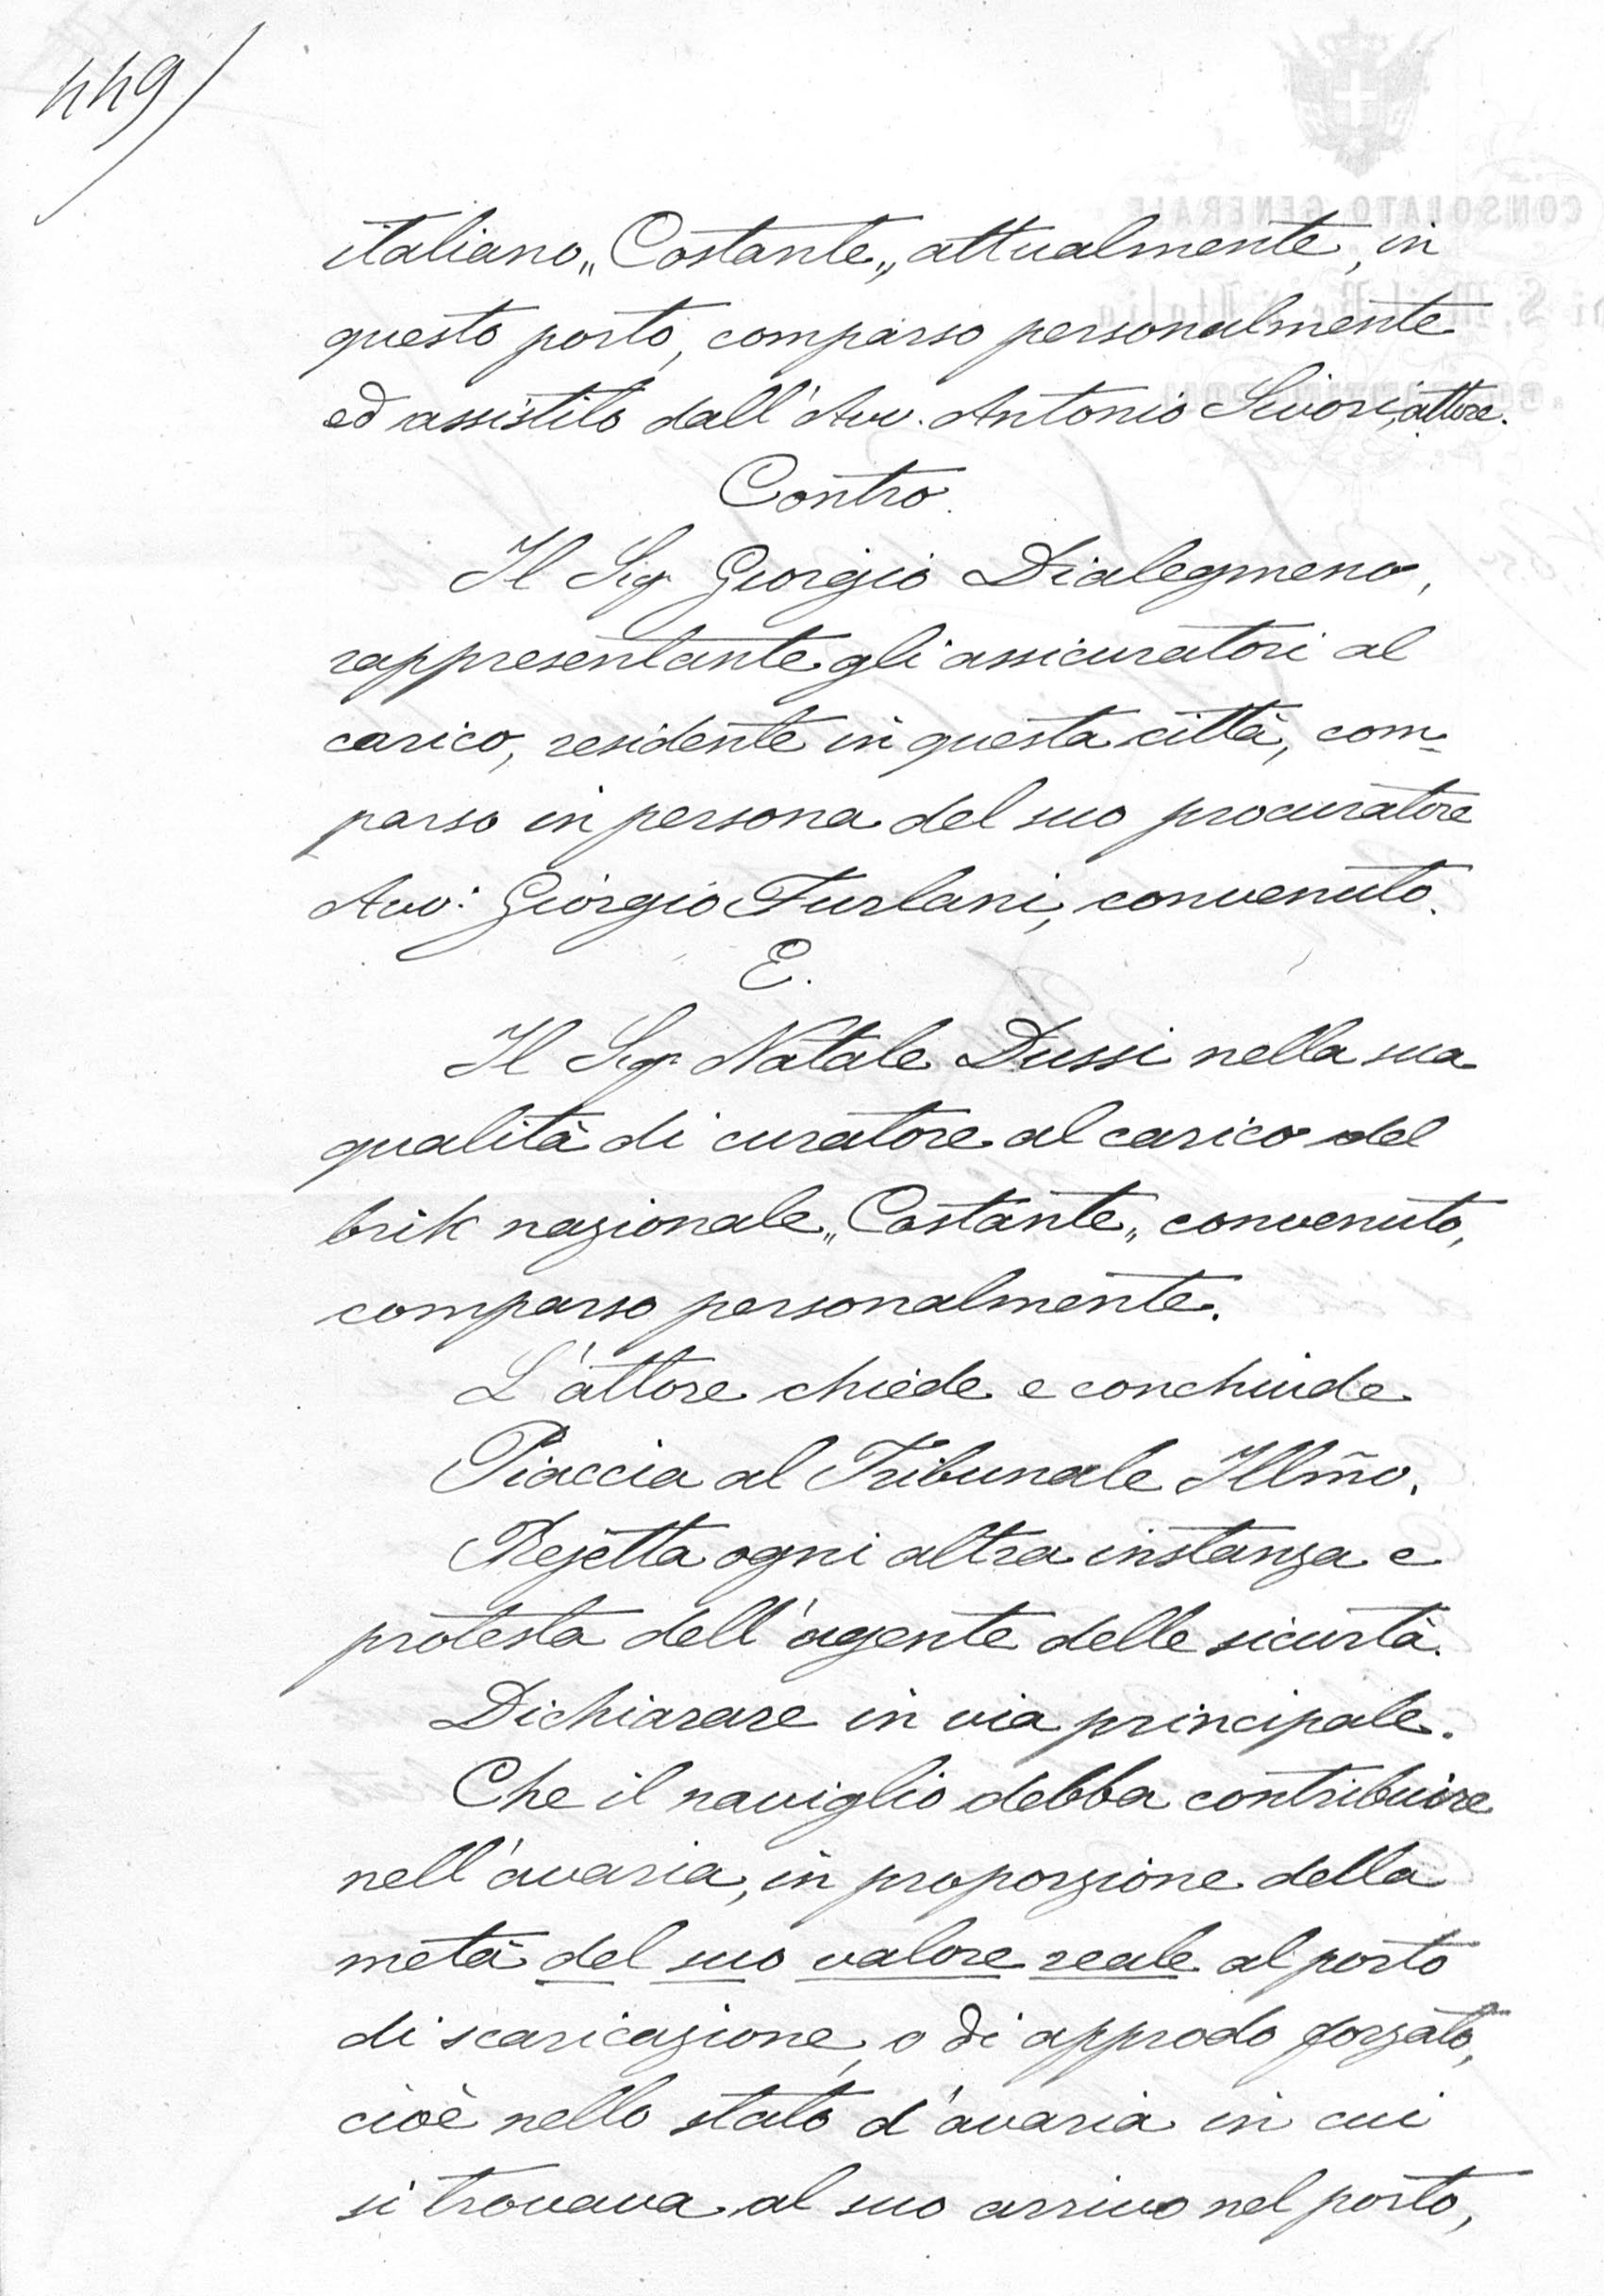 449/
italiano „Costante„ attualmente, in
questo porto, comparso personalmente
ed assistito dall'Avv. Antonio Sivori, attore.
Contro.
Il Sigr Giorgio Dialegmeno,
rappresentante gli assicuratori al
carico, residente in questa città, com-
parso in persona del suo procuratore
Avv: Giorgio Furlani, convenuto.
E.
Il Sigr Natale Dussi nella sua
qualità di curatore al carico del
brik nazionale „Costante„ convenuto,
comparso personalmente.
L'attore chiede e conchiude
Piaccia al Tribunale Illm̃o.
Rejetta ogni altra instanza e
protesta dell'agente delle sicurtà.
Dichiarare in via principale.
Che il naviglio debba contribuire
nell'avaria, in proporzione della
metà del suo valore reale al porto
di scaricazione, o di approdo forzato,
cioè nello stato d'avaria in cui
si trovava al suo arrivo nel porto,
CONSOLATO GENERALE